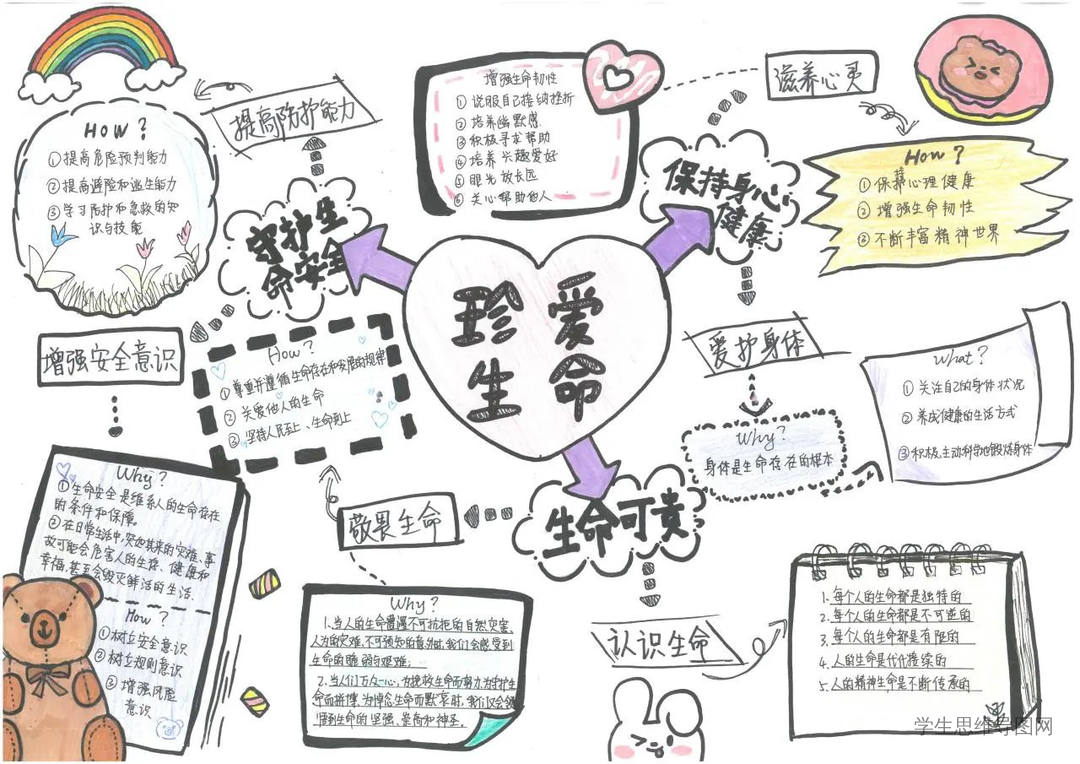 珍爱
生命
守护生
命安全
提高防护能力
How？
①提高危险预判能力
②提高避险和逃生能力
③学习防护和急救的知
识与技能
增强安全意识
Why？
①生命安全是维系人的生命存在
的条件和保障。
②在日常生活中,突如其来的灾难、事
故可能会危害人的生存、健康和
幸福,甚至会毁灭鲜活的生活.
How？
①树立安全意识
②树立规则意识
③增强风险
意识
保持身心
健康
滋养心灵
How？
①保养心理健康
②增强生命韧性
③不断丰富精神世界
增强生命韧性
①说服自己接纳挫折
②培养幽默感
③积极寻求帮助
④培养兴趣爱好
⑤眼光放长远
⑥关心帮助他人
爱护身体
Why？
身体是生命存在的根本
What？
①关注自己的身体状况
②养成健康的生活方式
③积极、主动科学地锻炼身体
生命可贵
敬畏生命
How？
①尊重并遵循生命存在和发展的规律
②关爱他人的生命
③坚持人民至上、生命到上
Why？
1.当人的生命遭遇不可抗拒的自然灾害、
人为的灾难、不可预知的意外时,我们会感受到
生命的脆弱与艰难;
2.当人们万众一心,为挽救生命而努力,为守护生
命而拼搏、为悼念生命而默哀时,我们又会领
悟到生命的坚强、崇高和神圣。
认识生命
1.每个人的生命都是独特的
2.每个人的生命都是不可逆的
3.每个人的生命都有限的
4.人的生命是代代接续的
5.人的精神生命是不断传承的
学生思维导图网